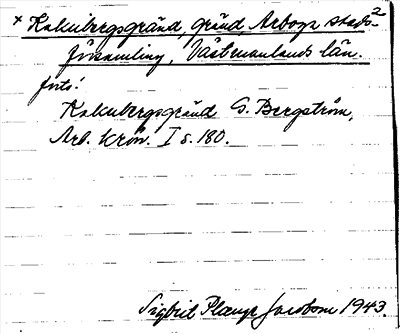 × Kakubergsgränd, gränd, Arboga stads- 2
församling, Västmanlands län.
forts!
Kakubergsgränd G. Bergström,
Arb. krön. I s. 180.
Sigbrit Plænge Jacobson 1943.